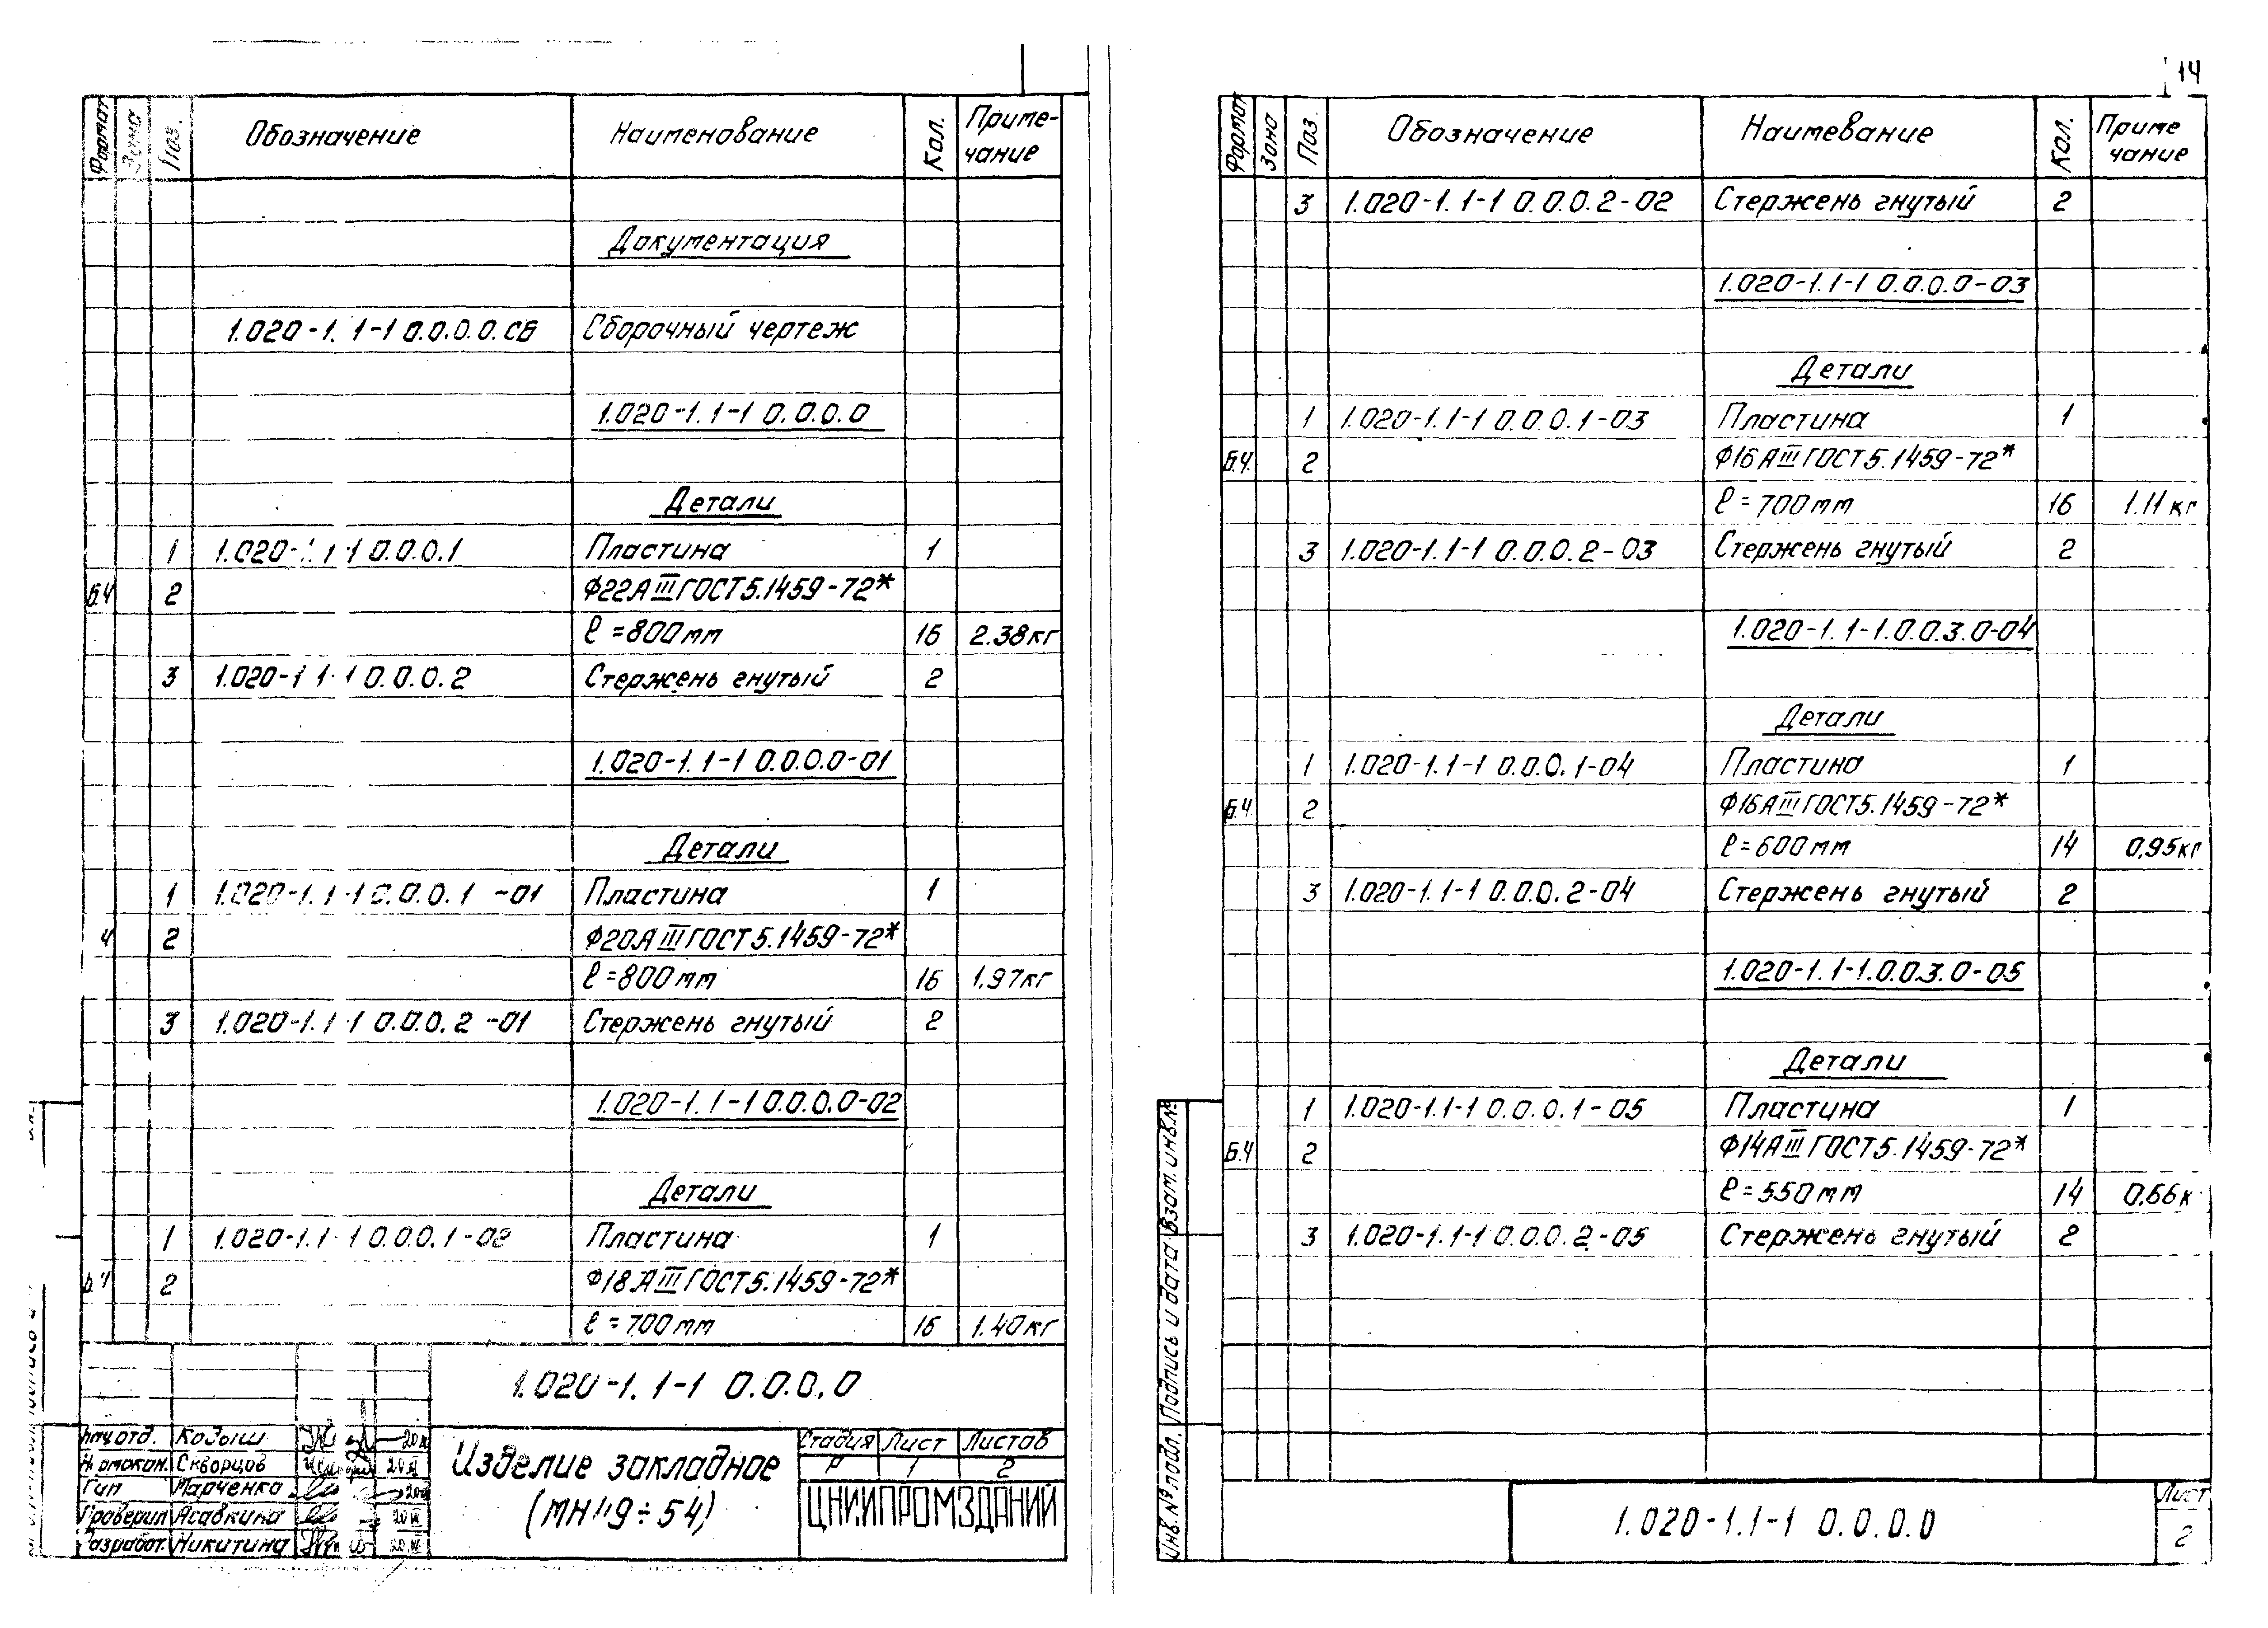 Формат Зона Поз. Обозначение Наименование Кол. Приме-
чание
Документация
1.020-1.1-1 0.0.0.0.СБ Сборочный чертеж
1.020-1.1-1 0.0.0.0
Детали
1 1.020-1.1-1 0.0.0.1 Пластина 1
Б.Ч 2 Ф22АIII ГОСТ 5.1459-72*
ℓ=800мм 16 2.38кг
3 1.020-1.1-1 0.0.0.2 Стержень гнутый 2
1.020-1.1-1 0.0.0.0-01
Детали
1 1.020-1.1-1 0.0.0.1-01 Пластина 1
Ч 2 Ф20АIII ГОСТ 5.1459-72*
ℓ=800мм 16 1.97кг
3 1.020-1.1-1 0.0.0.2-01 Стержень гнутый 2
1.020-1.1-1 0.0.0.0-02
Детали
1 1.020-1.1-1 0.0.0.1-02 Пластина 1
Б.Ч 2 Ф18АIII ГОСТ 5.1459-72*
ℓ=700мм 16 1.40кг
1.020-1.1-1 0.0.0.0
Нач.отд. Кодыш
Н.контр. Скворцов
Гип Марченко
Проверил Асавкина
Разработ. Никитина
Изделие закладное
(МН49÷54)
Стадия Лист Листов
Р 1 2
ЦНИИПРОМЗДАНИЙ
14
Формат Зона Поз. Обозначение Наимевание Кол. Приме
чание
3 1.020-1.1-1 0.0.0.2-02 Стержень гнутый 2
1.020-1.1-1 0.0.0.0-03
Детали
1 1.020-1.1-1 0.0.0.1-03 Пластина 1
Б.Ч. 2 Ф16АIII ГОСТ 5.1459-72*
ℓ=700мм 16 1.11кг
3 1.020-1.1-1 0.0.0.2-03 Стержень гнутый 2
1.020-1.1-1.0.0.3.0-04
Детали
1 1.020-1.1-1 0.0.0.1-04 Пластина 1
Б.Ч. 2 Ф16АIII ГОСТ 5.1459-72*
ℓ=600мм 14 0,95кг
3 1.020-1.1-1 0.0.0.2-04 Стержень гнутый 2
1.020-1.1-1.0.0.3.0-05
Детали
1 1.020-1.1-1 0.0.0.1-05 Пластина 1
Б.Ч 2 Ф14АIII ГОСТ 5.1459-72*
ℓ=550мм 14 0,66к
3 1.020-1.1-1 0.0.0.2-05 Стержень гнутый 2
Инв.№ подл. Подпись и дата Взам.инв.№
1.020-1.1-1 0.0.0.0
Лист
2